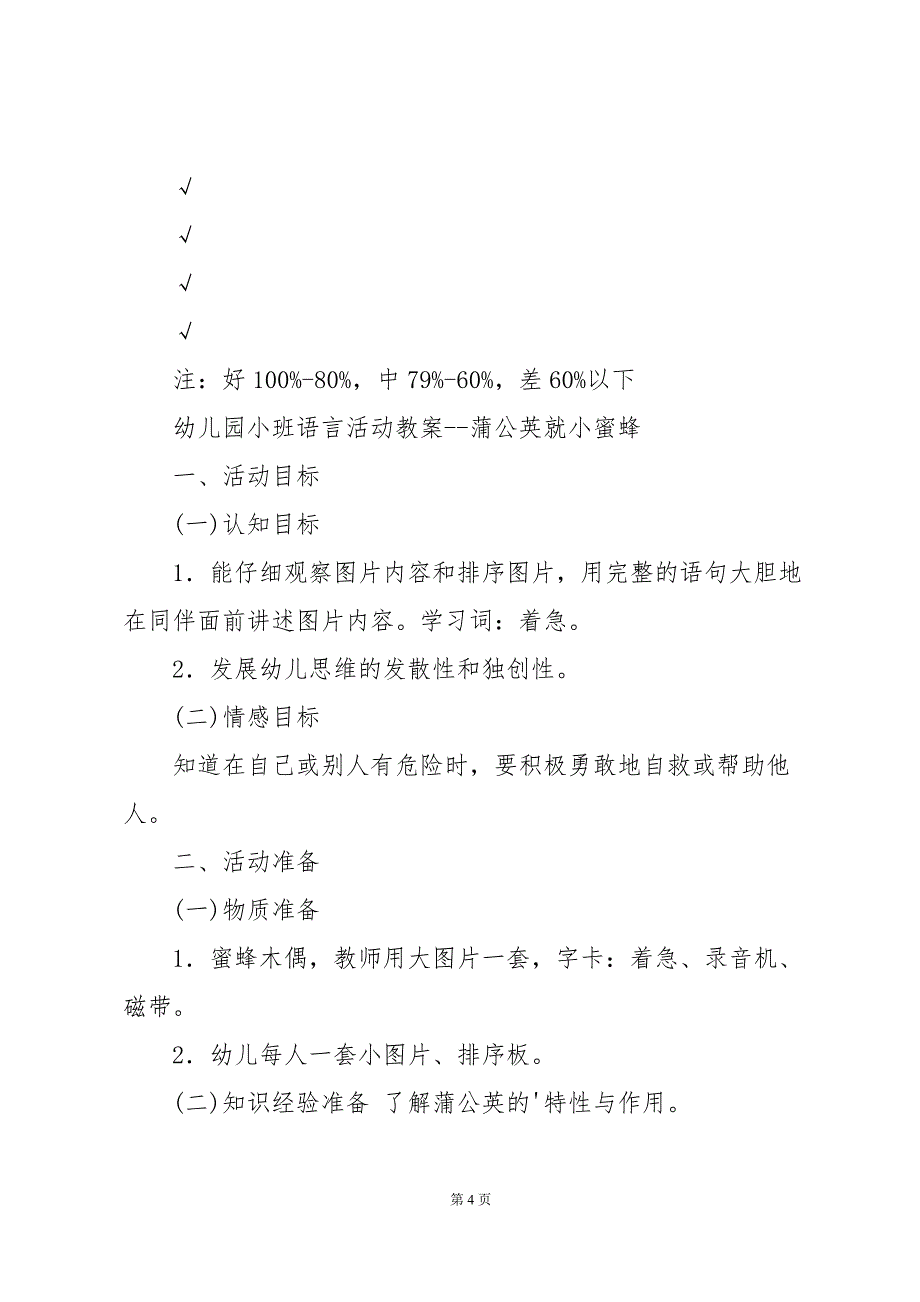 √
√
√
√
注：好 100%-80%，中 79%-60%，差 60%以下
幼儿园小班语言活动教案--蒲公英就小蜜蜂
一、活动目标
(一)认知目标
1．能仔细观察图片内容和排序图片，用完整的语句大胆地
在同伴面前讲述图片内容。学习词：着急。
2．发展幼儿思维的发散性和独创性。
(二)情感目标
知道在自己或别人有危险时，要积极勇敢地自救或帮助他
人。
二、活动准备
(一)物质准备
1．蜜蜂木偶，教师用大图片一套，字卡：着急、录音机、
磁带。
2．幼儿每人一套小图片、排序板。
(二)知识经验准备 了解蒲公英的'特性与作用。
第 4 页